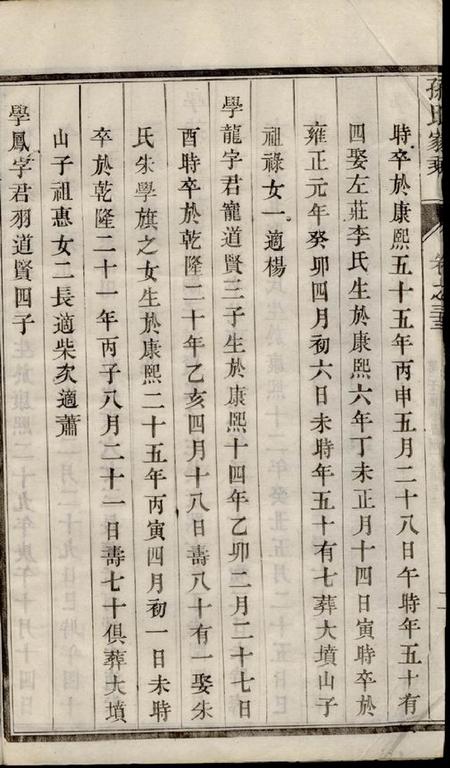 孫氏家乘
卷之三
時卒於康熙五十五年丙申五月二十八日午時年五十有
四娶左莊李氏生於康熙六年丁未正月十四日寅時卒於
雍正元年癸卯四月初六日未時年五十有七葬大墳山子
祖祿女一適楊
學龍字君寵道賢三子生於康熙十四年乙卯二月二十七日
酉時卒於乾隆二十年乙亥四月十八日壽八十有一娶朱
氏朱學旗之女生於康熙二十五年丙寅四月初一日未時
卒於乾隆二十一年丙子八月二十一日壽七十俱葬大墳
山子祖惠女二長適柴次適蕭
學鳳字君羽道賢四子